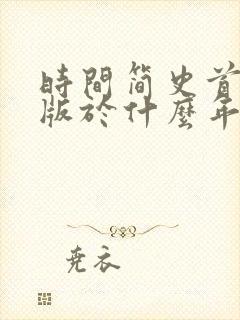 時間简史首
版於什麼年
尧衣